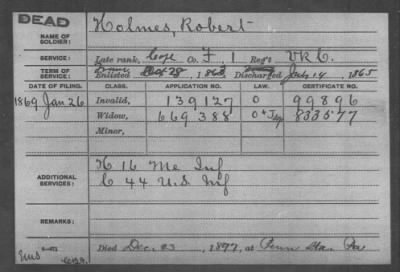 DEAD
Holmes, Robert
NAME OF SOLDIER:
SERVICE: Late rank, Co. F, 1 Reg't V R C.
TERM OF SERVICE: Enlisted 1863, Discharged July 14, 1865
DATE OF FILING. CLASS. APPLICATION NO. LAW. CERTIFICATE NO.
1869 Jan 26 Invalid, 139127 0 99896
Widow, 669388 833577
Minor,
ADDITIONAL SERVICES: H 16 Me Inf
C 44 U.S. Inf
REMARKS:
Died Dec. 23, 1897, at Penn Sta. Pa